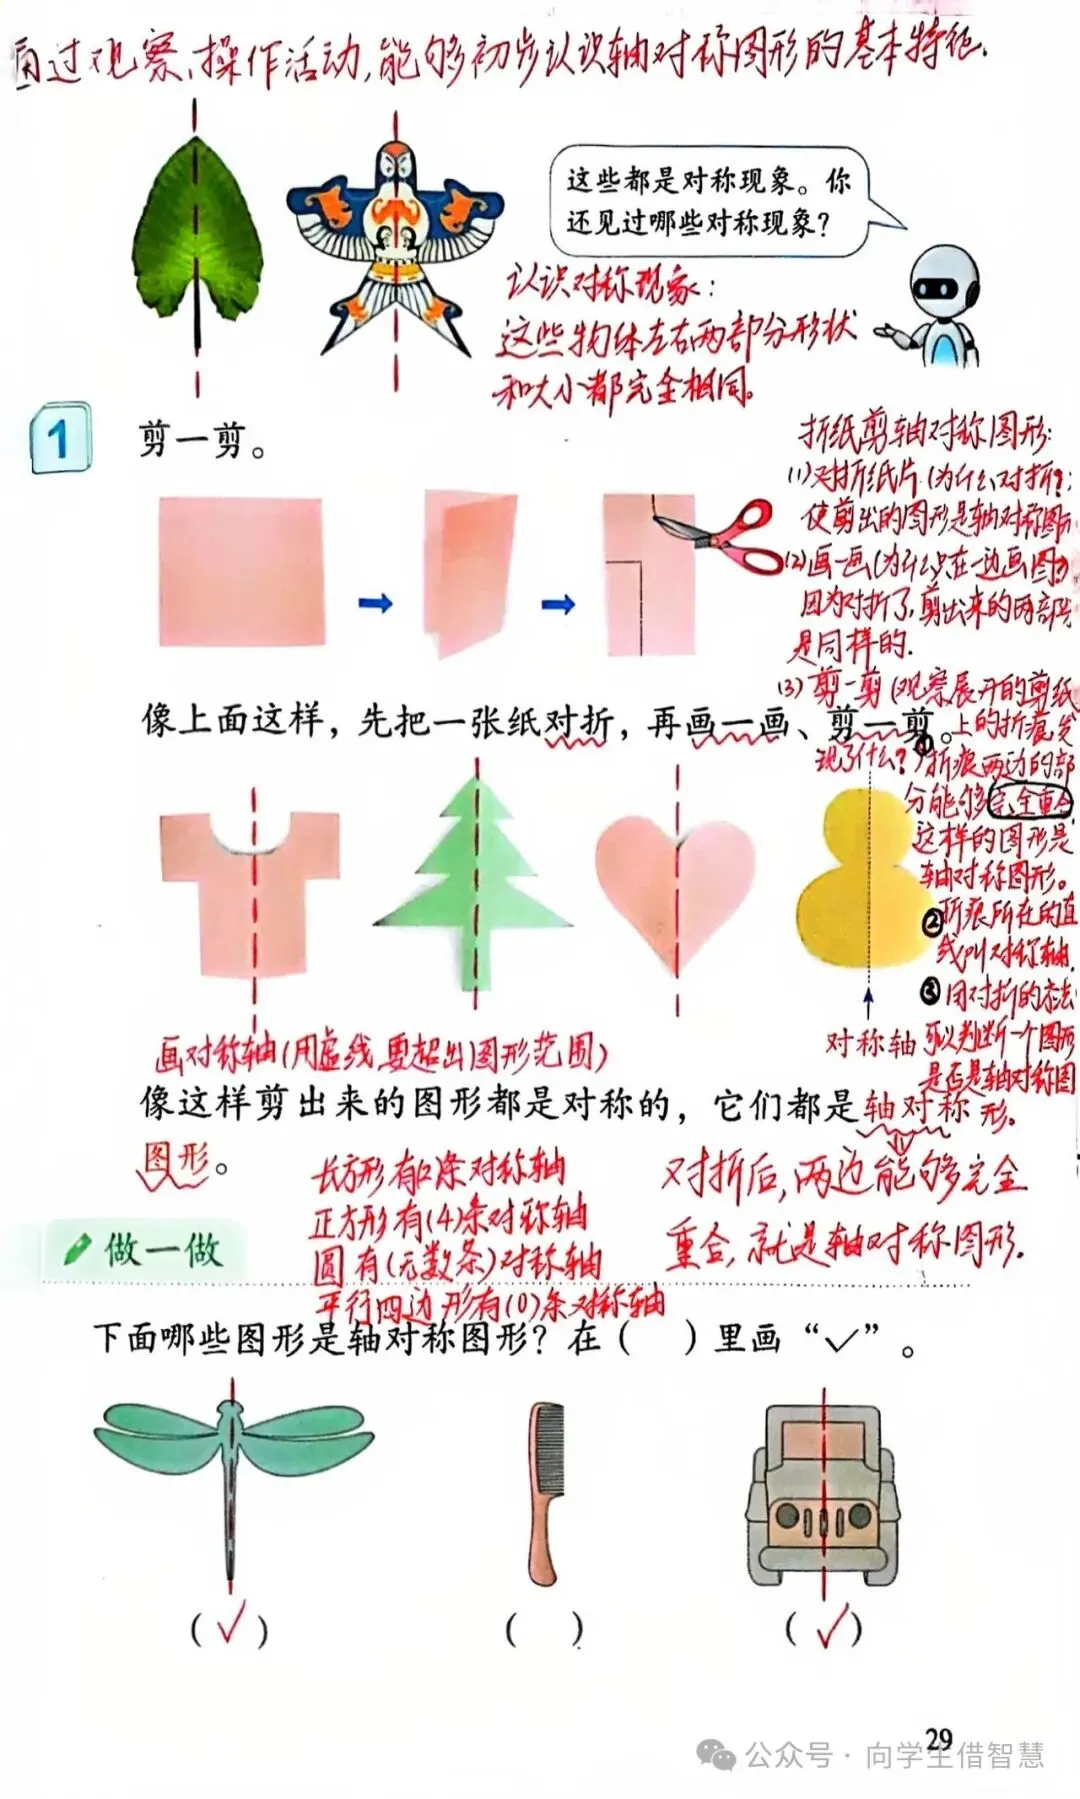 通过观察、操作活动,能够初步认识轴对称图形的基本特征.
这些都是对称现象。你
还见过哪些对称现象?
认识对称现象:
这些物体左右两部分形状
和大小都完全相同。
1
剪一剪。
折纸剪轴对称图形:
(1)对折纸片(为什么对折?:
使剪出的图形是轴对称图
(2)画一画(为什么只在一边画图?)
因为对折了,剪出来的两部分
是同样的.
(3)剪一剪(观察展开的剪纸
像上面这样,先把一张纸对折,再画一画、剪一剪。
上的折痕发
现了什么?)
①折痕两边的部
分能够完全重合,
这样的图形是
轴对称图形。
②折痕所在的直
线叫对称轴.
③用对折的办法
可以判断一个图形
是否是轴对称图
形.
对称轴
画对称轴(用虚线,要超出图形范围)
像这样剪出来的图形都是对称的,它们都是轴对称
图形。
长方形有2条对称轴
正方形有(4)条对称轴
圆有(无数条)对称轴
平行四边形有(0)条对称轴
对折后,两边能够完全
重合,就是轴对称图形.
做一做
下面哪些图形是轴对称图形?在( )里画“✓”。
(✓) ( ) (✓)
29
公众号·向学生借智慧